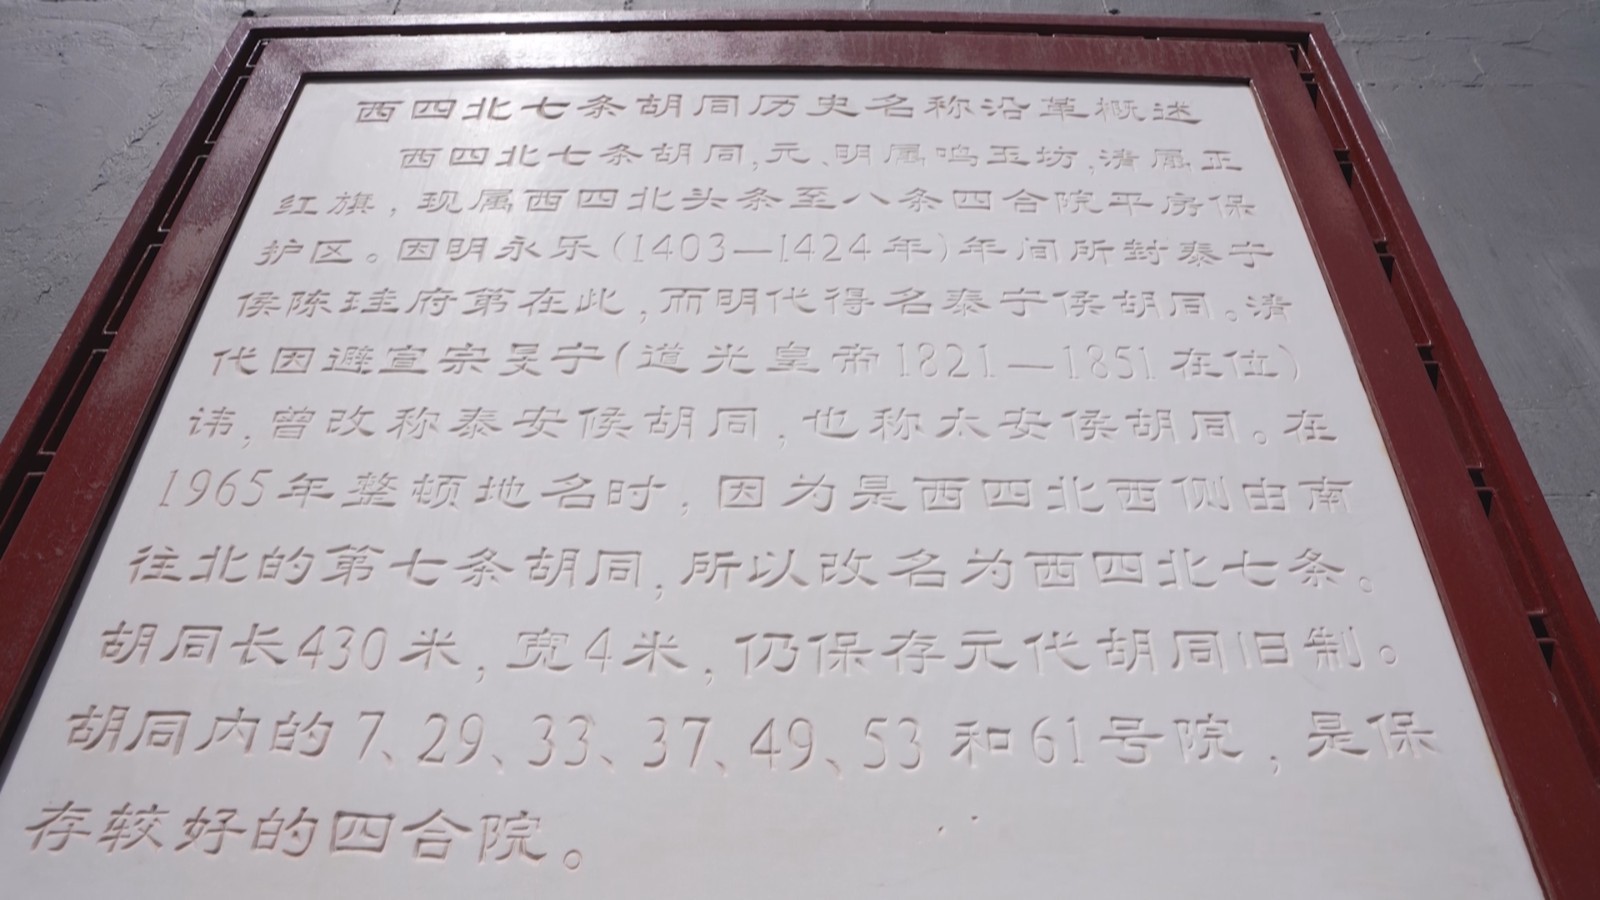 西四北七条胡同历史名称沿革概述
西四北七条胡同,元、明属鸣玉坊,清属正
红旗,现属西四北头条至八条四合院平房保
护区。因明永乐(1403—1424年)年间所封泰宁
侯陈珪府第在此,而明代得名泰宁侯胡同。清
代因避宣宗旻宁(道光皇帝1821—1851在位)
讳,曾改称泰安侯胡同,也称太安侯胡同。在
1965年整顿地名时,因为是西四北西侧由南
往北的第七条胡同,所以改名为西四北七条。
胡同长430米,宽4米,仍保存元代胡同旧制。
胡同内的7、29、33、37、49、53和61号院,是保
存较好的四合院。